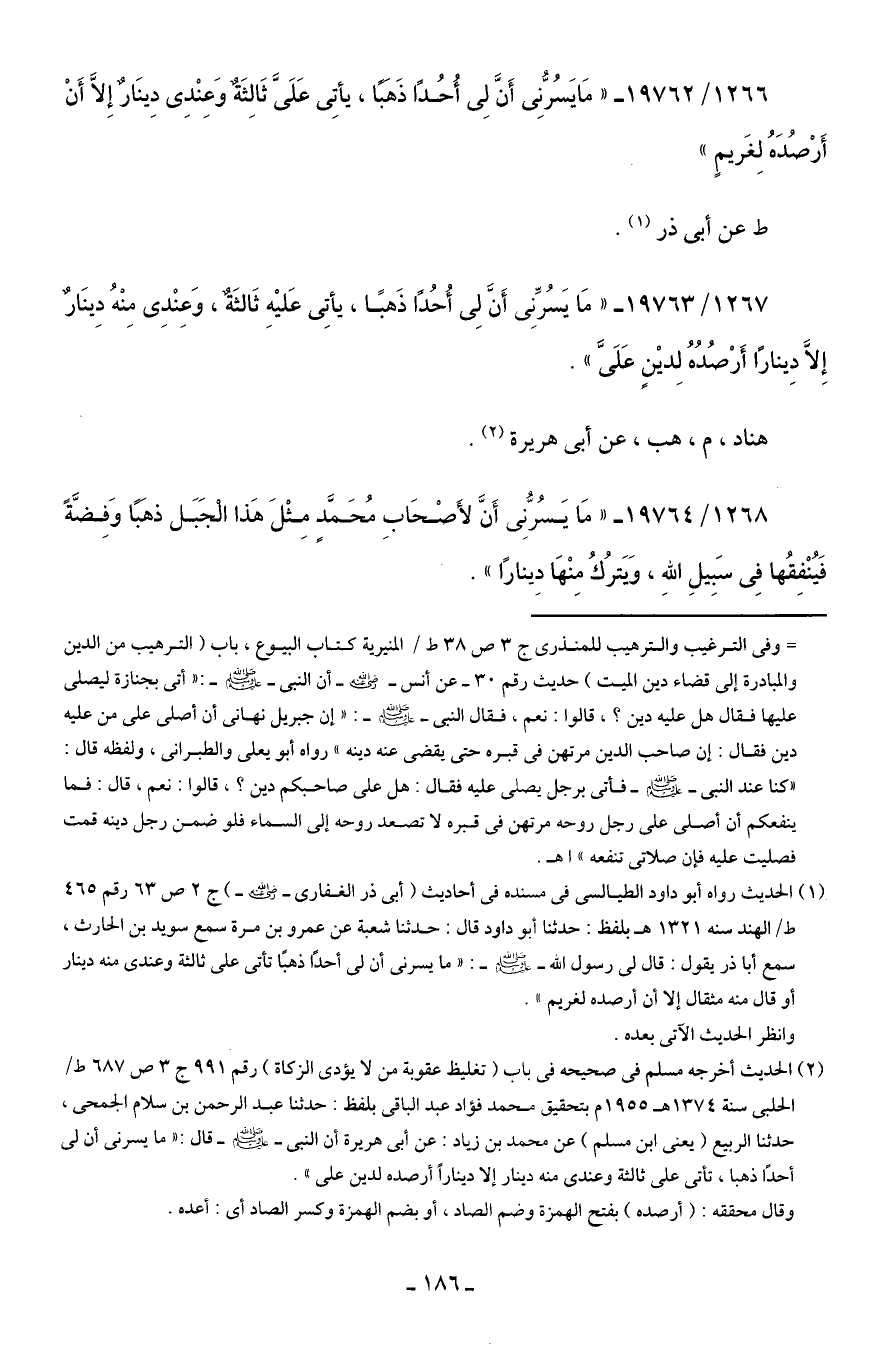 ١٢٦٦/ ١٩٧٦٢ـ « مَايَسُرُّنِى أَنَّ لِى أُحُدًا ذَهَبًا ، يأتِى عَلَىَّ ثَالِثَةٌ وَعِنْدِى دِينَارٌ إِلاَّ أَنْ
أَرْصُدَهُ لِغَرِيمٍ »
ط عن أبى ذر (١) .
١٢٦٧/ ١٩٧٦٣ـ « مَا يَسُرِّنِى أَنَّ لِى أُحُدًا ذَهبًا ، يأتِى عَلَيْهِ ثَالثَةٌ ، وَعِنْدِى مِنْهُ دِينَارٌ
إِلاَّ دِينارًا أَرْصُدُهُ لِديْنٍ عَلَىَّ » .
هناد ، م ، هب ، عن أبى هريرة (٢) .
١٢٦٨/ ١٩٧٦٤ـ « مَا يَسُرُّنِى أَنَّ لأَصْحَابِ مُحَمَّدٍ مِثْلَ هَذا الْجَبَلِ ذهبًا وَفِضَّةً
فَيُنْفِقُها فِى سَبِيلِ اللهِ ، وَيَتركُ مِنْهَا دِينارًا » .
= وفى الترغيب والترهيب للمنذرى ج ٣ ص ٣٨ ط / المنيرية كتاب البيوع ، باب ( الترهيب من الدين
والمبادرة إلى قضاء دين الميت ) حديث رقم ٣٠ ـ عن أنس ـ رضي الله عنه ـ أن النبى ـ ﷺ ـ :« أتى بجنازة ليصلى
عليها فقال هل عليه دين ؟ ، قالوا : نعم ، فقال النبى ـ ﷺ ـ : « إن جبريل نهانى أن أصلى على من عليه
دين فقال : إن صاحب الدين مرتهن فى قبره حتى يقضى عنه دينه » رواه أبو يعلى والطبرانى ، ولفظه قال :
«كنا عند النبى ـ ﷺ ـ فأتى برجل يصلى عليه فقال : هل على صاحبكم دين ؟ ، قالوا : نعم ، قال : فما
ينفعكم أن أصلى على رجل روحه مرتهن فى قبره لا تصعد روحه إلى السماء فلو ضمن رجل دينه قمت
فصليت عليه فإن صلاتى تنفعه » ا هـ .
(١) الحديث رواه أبو داود الطيالسى فى مسنده فى أحاديث ( أبى ذر الغفارى ـ رضي الله عنه ـ ) ج ٢ ص ٦٣ رقم ٤٦٥
ط/ الهند سنه ١٣٢١ هـ بلفظ : حدثنا أبو داود قال : حدثنا شعبة عن عمرو بن مرة سمع سويد بن الحارث ،
سمع أبا ذر يقول : قال لى رسول الله ـ ﷺ ـ : « ما يسرنى أن لى أحدًا ذهبًا تأتى على ثالثة وعندى منه دينار
أو قال منه مثقال إلا أن أرصده لغريم » .
وانظر الحديث الآتى بعده .
(٢) الحديث أخرجه مسلم فى صحيحه فى باب ( تغليظ عقوبة من لا يؤدى الزكاة ) رقم ٩٩١ ج ٣ ص ٦٨٧ ط/
الحلبى سنة ١٣٧٤هـ ١٩٥٥م بتحقيق محمد فؤاد عبد الباقى بلفظ : حدثنا عبد الرحمن بن سلام الجمحى ،
حدثنا الربيع ( يعنى ابن مسلم ) عن محمد بن زياد : عن أبى هريرة أن النبى ـ ﷺ ـ قال :« ما يسرنى أن لى
أحدًا ذهبا ، تأتى على ثالثة وعندى منه دينار إلا ديناراً أرصده لدين على » .
وقال محققه : ( أرصده ) بفتح الهمزة وضم الصاد ، أو بضم الهمزة وكسر الصاد أى : أعده .
ـ ١٨٦ ـ